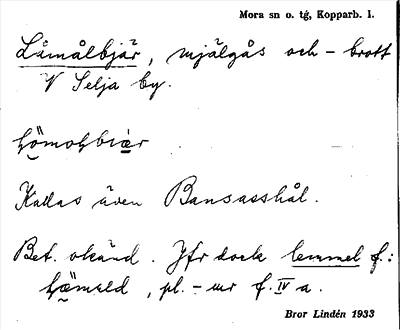 Mora sn o. tg, Kopparb. l.
Låmålbjär, mjälgås och - brott
V Selja by.
Kallas även Bansasshål.
Bet. okänd. Jfr dock lemmel f.:
, pl. - ur f. IV a.
Bror Lindén 1933